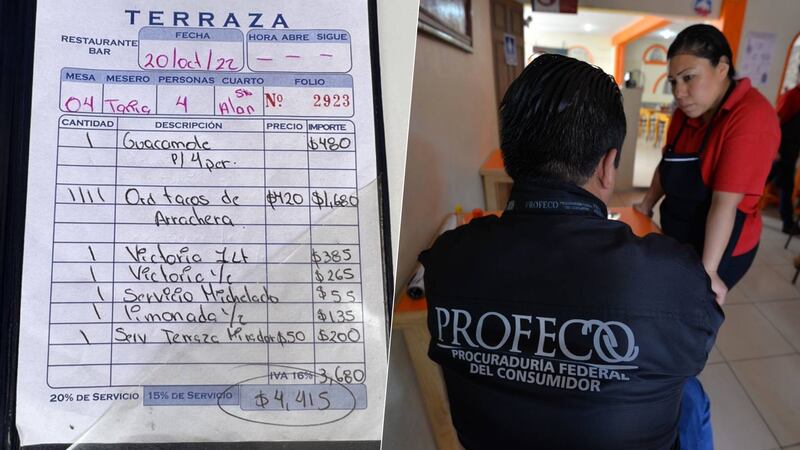 TERRAZA
RESTAURANTE BAR
FECHA
20/oct/22
HORA ABRE SIGUE
— — —
MESA MESERO PERSONAS CUARTO FOLIO
04 Tania 4 Alan Nº 2923
CANTIDAD DESCRIPCIÓN PRECIO IMPORTE
1 Guacamole $480
p/ 4 per.
1111 Ord tacos de $420 $1,680
Arrachera
1 Victoria 1Lt $385
1 Victoria 1/2 $265
1 Servicio Michelado $55
1 limonada 1/2 $135
1 Serv Terraza Mirador $50 $200
IVA 16% 3,680
20% DE SERVICIO 15% DE SERVICIO $4,415
PROFECO
PROFECO
PROCURADURÍA FEDERAL
DEL CONSUMIDOR